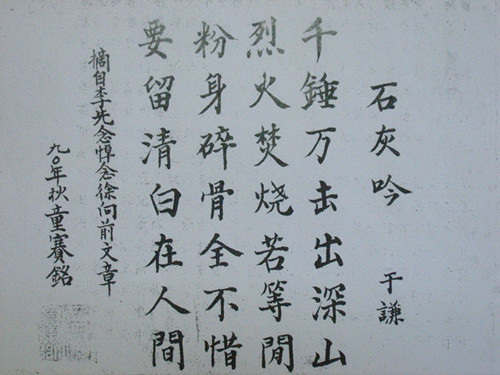 石灰吟
于謙
千錘万击出深山
烈火焚烧若等閒
粉身碎骨全不惜
要留清白在人間
摘自李先念悼念徐向前文章
九〇年秋童賽銘